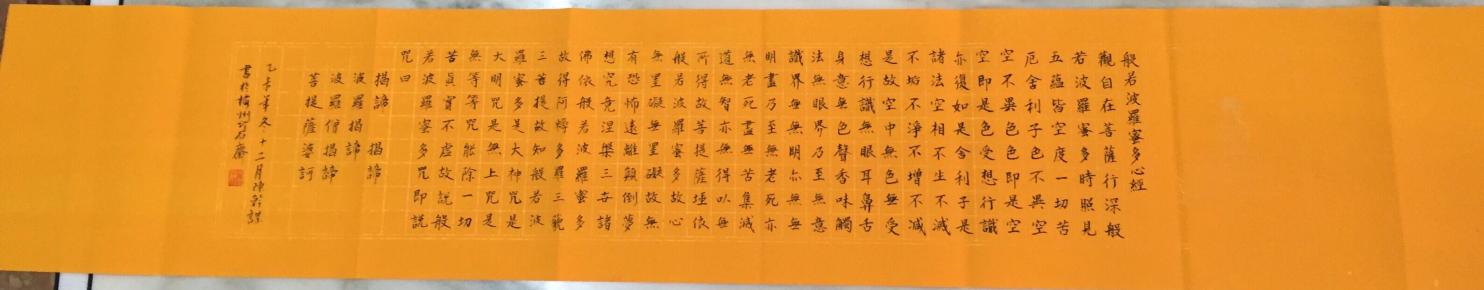 般若波羅蜜多心經
觀自在菩薩行深般
若波羅蜜多時照見
五蘊皆空度一切苦
厄舍利子色不異空
空不異色色即是空
空即是色受想行識
亦復如是舍利子是
諸法空相不生不滅
不垢不淨不增不減
是故空中無色無受
想行識無眼耳鼻舌
身意無色聲香味觸
法無眼界乃至無意
識界無無明亦無無
明盡乃至無老死亦
無老死盡無苦集滅
道無智亦無得以無
所得故菩提薩埵依
般若波羅蜜多故心
無罣礙無罣礙故無
有恐怖遠離顛倒夢
想究竟涅槃三世諸
佛依般若波羅蜜多
故得阿耨多羅三藐
三菩提故知般若波
羅蜜多是大神咒是
大明咒是無上咒是
無等等咒能除一切
苦真實不虛故說般
若波羅蜜多咒即說
咒曰
揭諦 揭諦
波羅揭諦
波羅僧揭諦
菩提薩婆訶
乙未年冬十二月陳
書於州齋